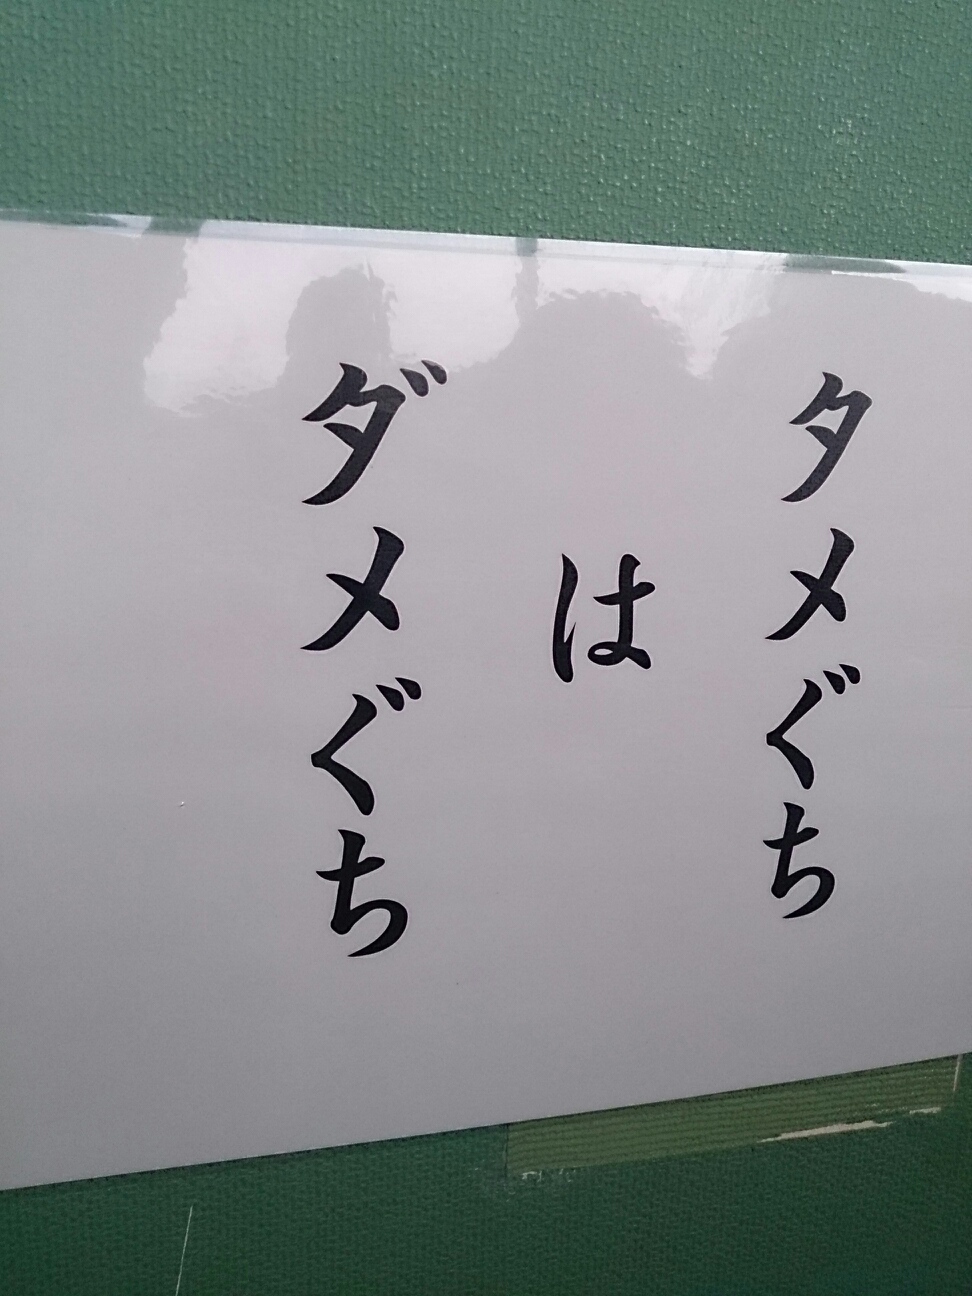 タメぐち
は
ダメぐち